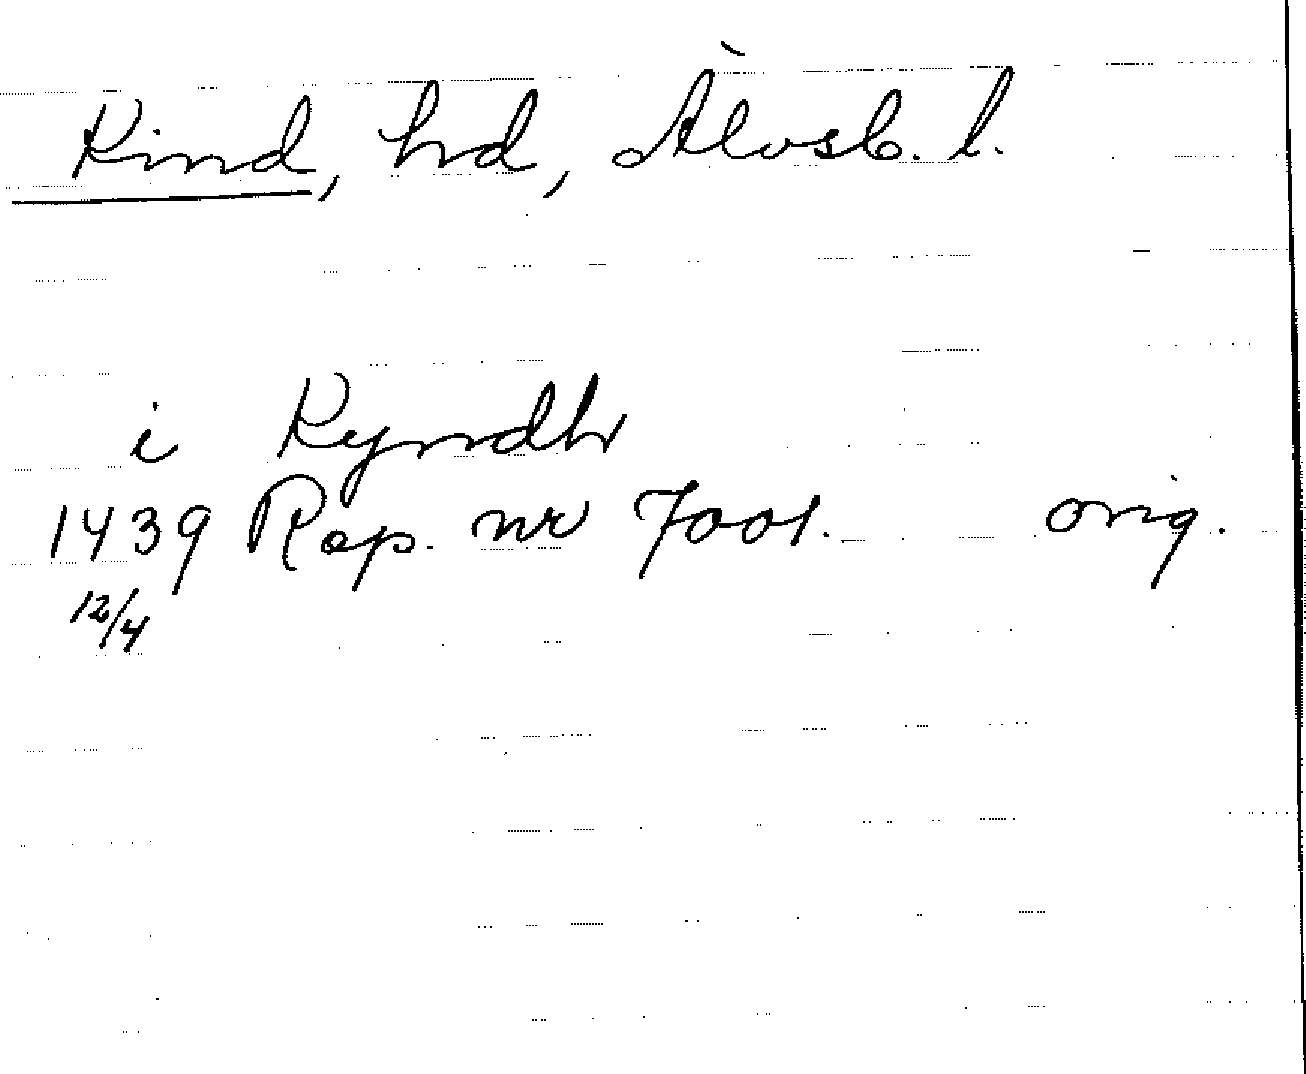 Kind, hd, Älvsb. l.
i Kyndh
1439 Rep. nr 7001. orig.
12/4